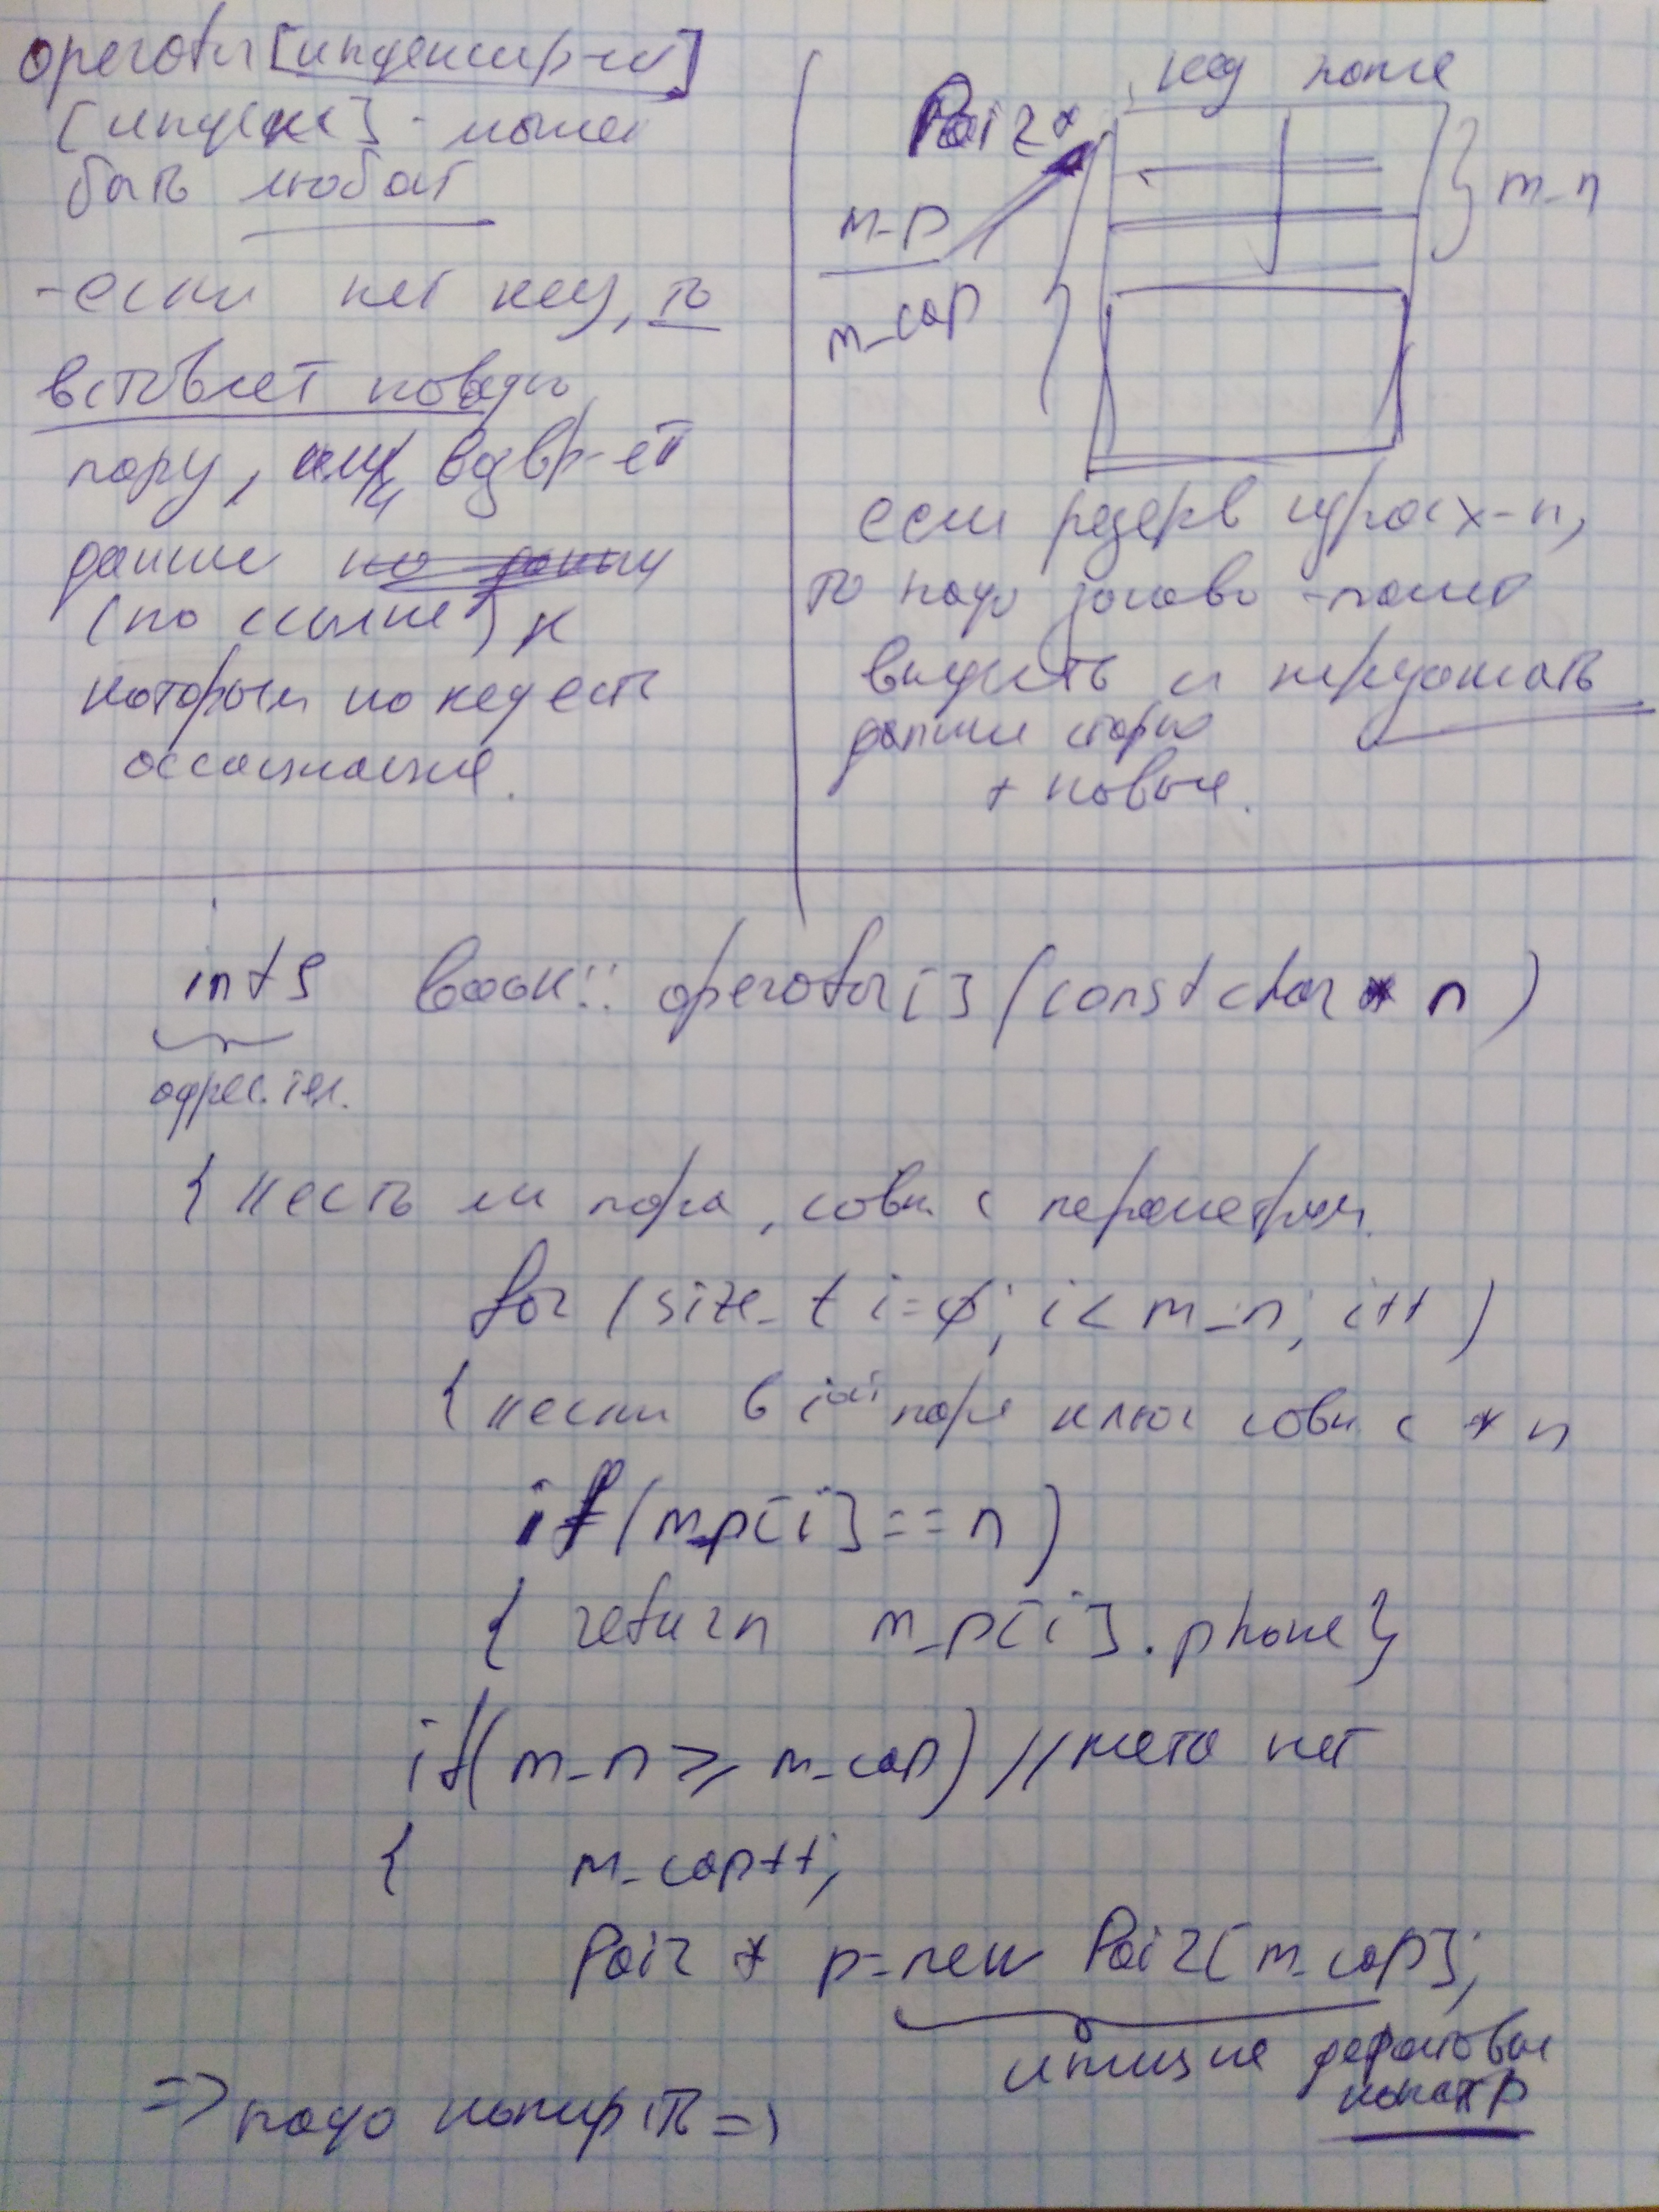 operator[индексир-ия]
[индекс] - может
быть любой
- если нет key, то
вставляет новую
пару, или возвр-ет
данные по данну
(по ссылке) к
которым по key есть
ассоциация.
key name
Pair*
m_p
m_n
m_cap
если резерв израсх-н,
то надо заново память
выделить и переписать
данные старые
+ новые.
int& book::operator[](const char * n)
адрес. тел.
{ //есть ли пара, совп. с параметром
for (size_t i=0; i < m_n; i++)
{ //если в iой паре ключ совп. с * n
if (m_p[i] == n)
{ return m_p[i].phone}
if (m_n >= m_cap) //места нет
{ m_cap++;
Pair * p=new Pair[m_cap];
дефолтовый
констр
=> надо копир-ть =>